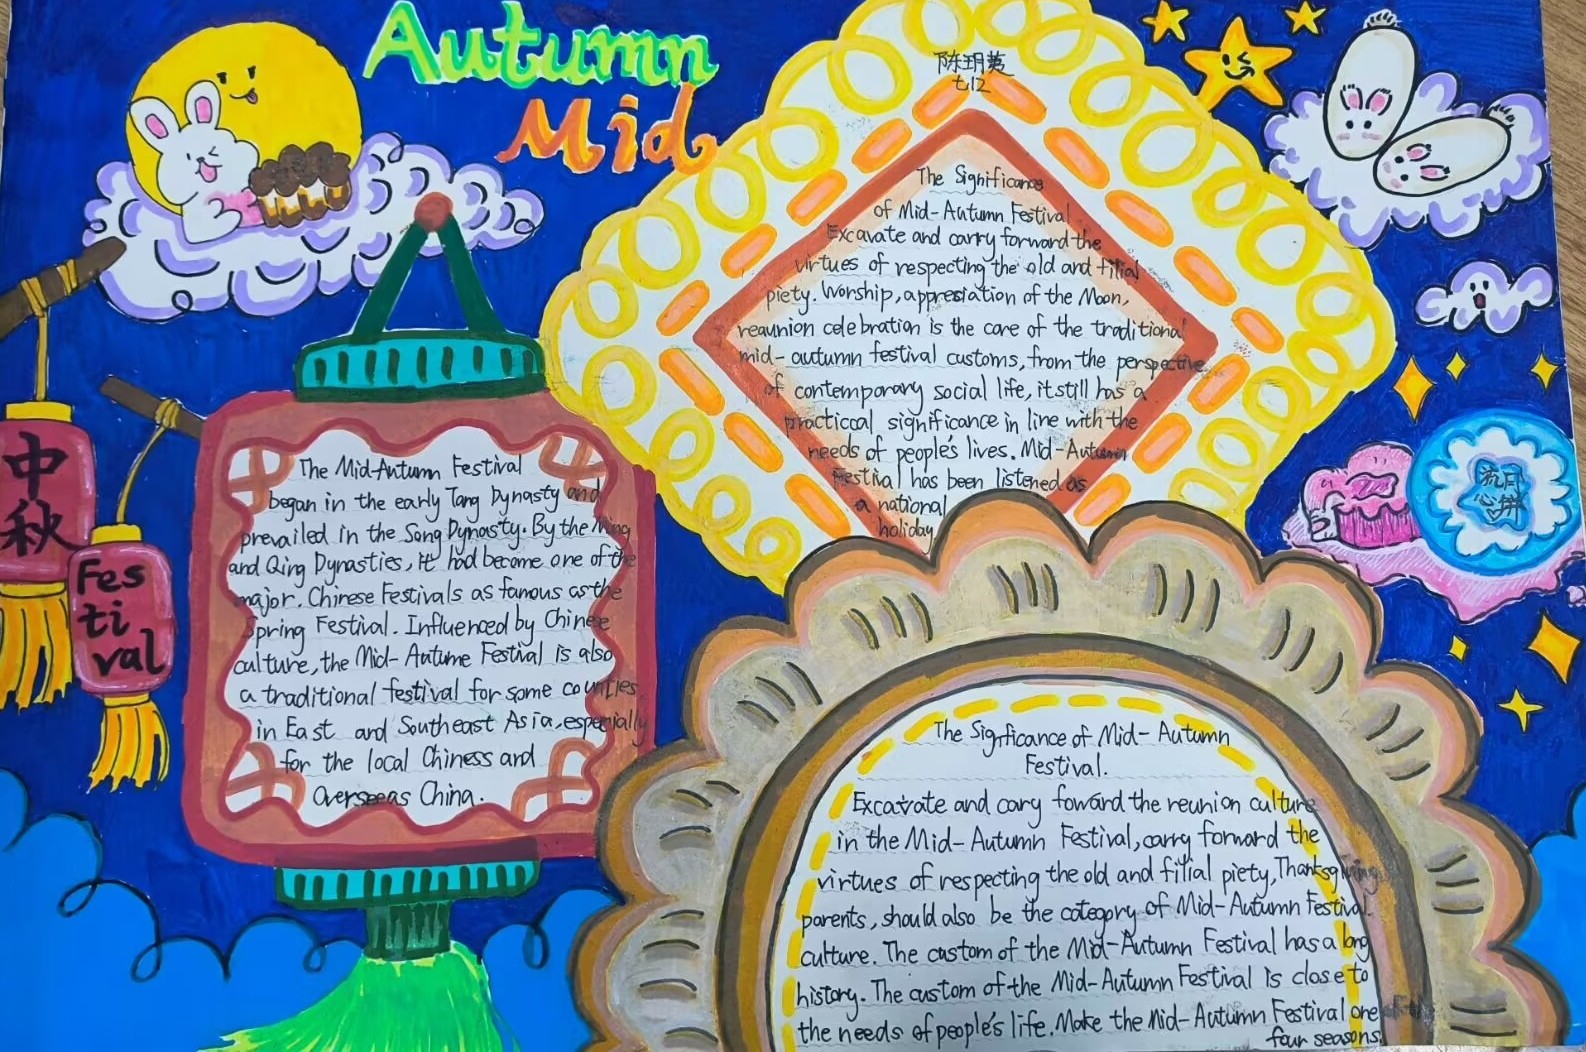 Autumn
Mid
陈玥
七12
中
秋
Fes
ti
val
The Significance
of Mid-Autumn Festival
Excavate and carry forward the
virtues of respecting the old and filial
piety. Worship, appresiation of the Moon,
reaunion celebration is the core of the traditional
mid-autumn festival customs, from the perspective
of contemporary social life, it still has a
practiccal significance in line with the
needs of people's lives. Mid-Autumn
Festival has been listened as
a national
holiday
The Mid-Autumn Festival
began in the early Tang Dynasty and
prevailed in the Song Dynasty. By the Ming
and Qing Dynasties, it had become one of the
major. Chinese Festivals as famous as the
Spring Festival. Influenced by Chinee
culture, the Mid-Autume Festival is also
a traditional festival for some counties
in East and Southeast Asia, especially
for the local Chiness and
Overseeas China.
流月
心饼
The Signficance of Mid-Autumn
Festival.
Excavate and cary foward the reunion culture
in the Mid-Autumn Festival, carry forward the
virtues of respecting the old and filial piety, Thanksgiving
parents, should also be the category of Mid-Autumn Festival.
culture. The custom of the Mid-Autumn Festival has a long
history. The custom of the Mid-Autumn Festival is close to
the needs of people's life. Make the Mid-Autumn Festival one
four seasons.